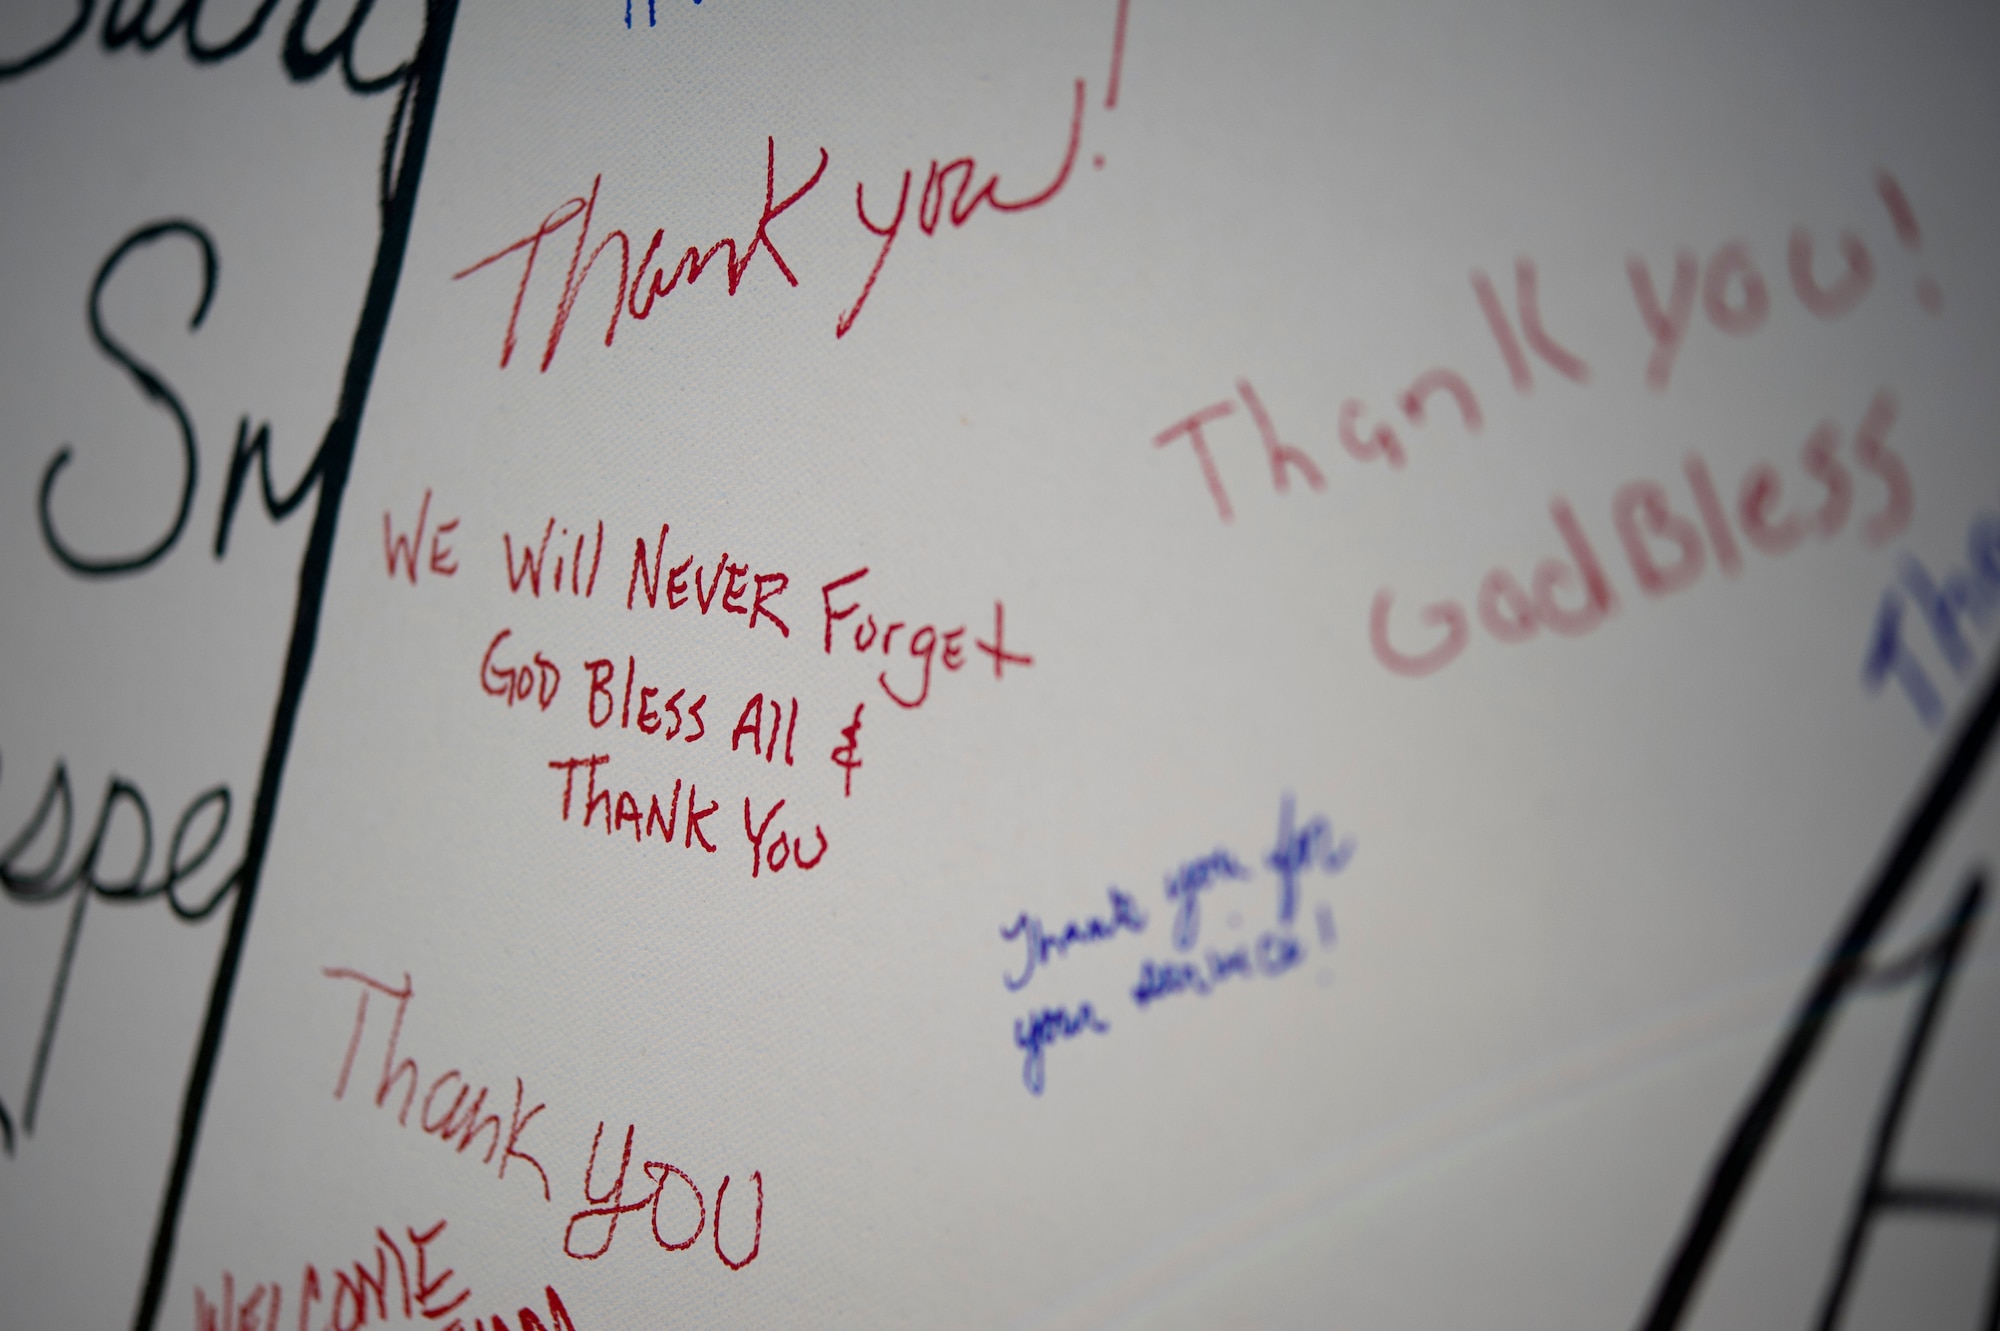 Thank you!
Thank you!
God Bless
WE Will NEVER Forget
GOD BLESS All &
THANK YOU
Thank you for
your service!
Thank you
WELCOME